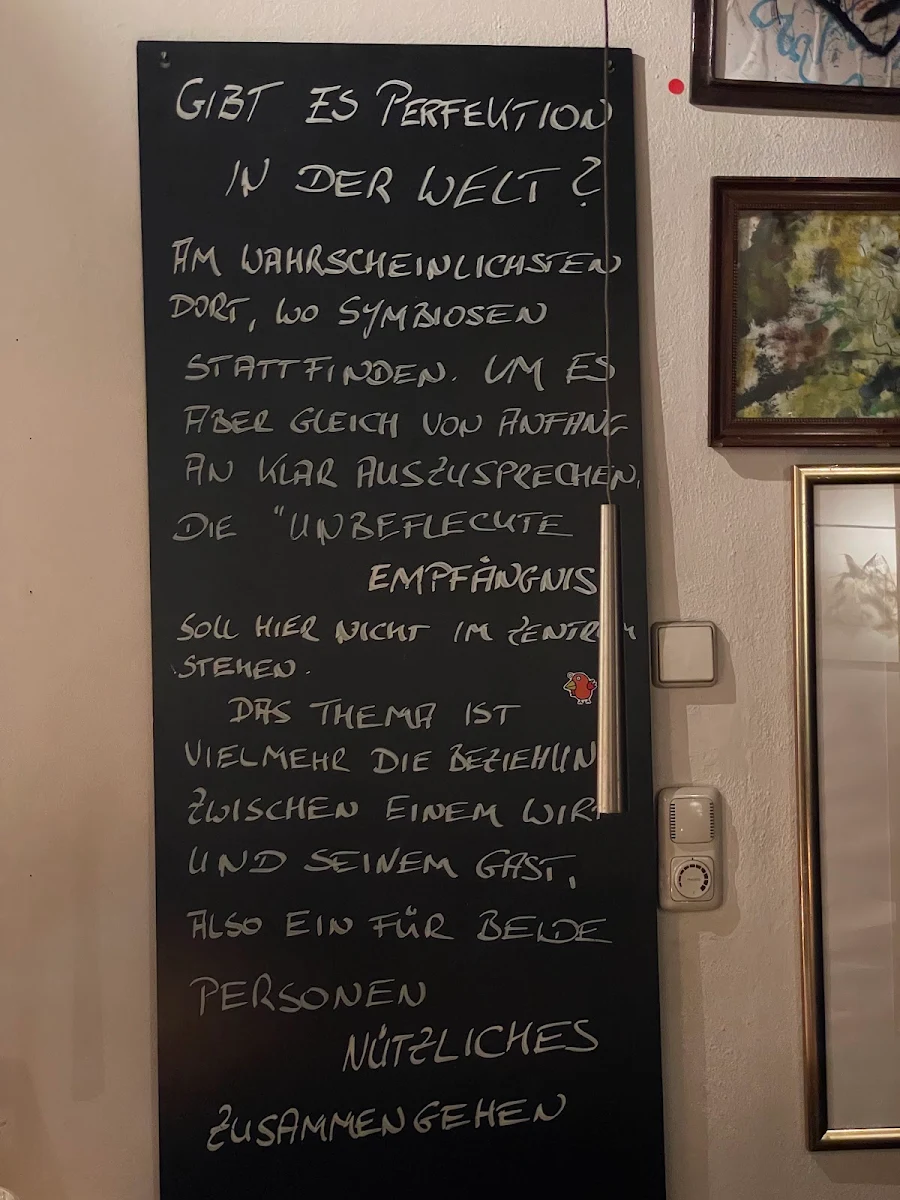 GIBT ES PERFEKTION
IN DER WELT?
AM WAHRSCHEINLICHSTEN
DORT, WO SYMBIOSEN
STATTFINDEN. UM ES
ABER GLEICH VON ANFANG
AN KLAR AUSZUSPRECHEN,
DIE "UNBEFLECKTE
EMPFÄNGNIS
SOLL HIER NICHT IM ZENTRUM
STEHEN.
DAS THEMA IST
VIELMEHR DIE BEZIEHUN
ZWISCHEN EINEM WIRT
UND SEINEM GAST,
ALSO EIN FÜR BEIDE
PERSONEN
NÜTZLICHES
ZUSAMMENGEHEN